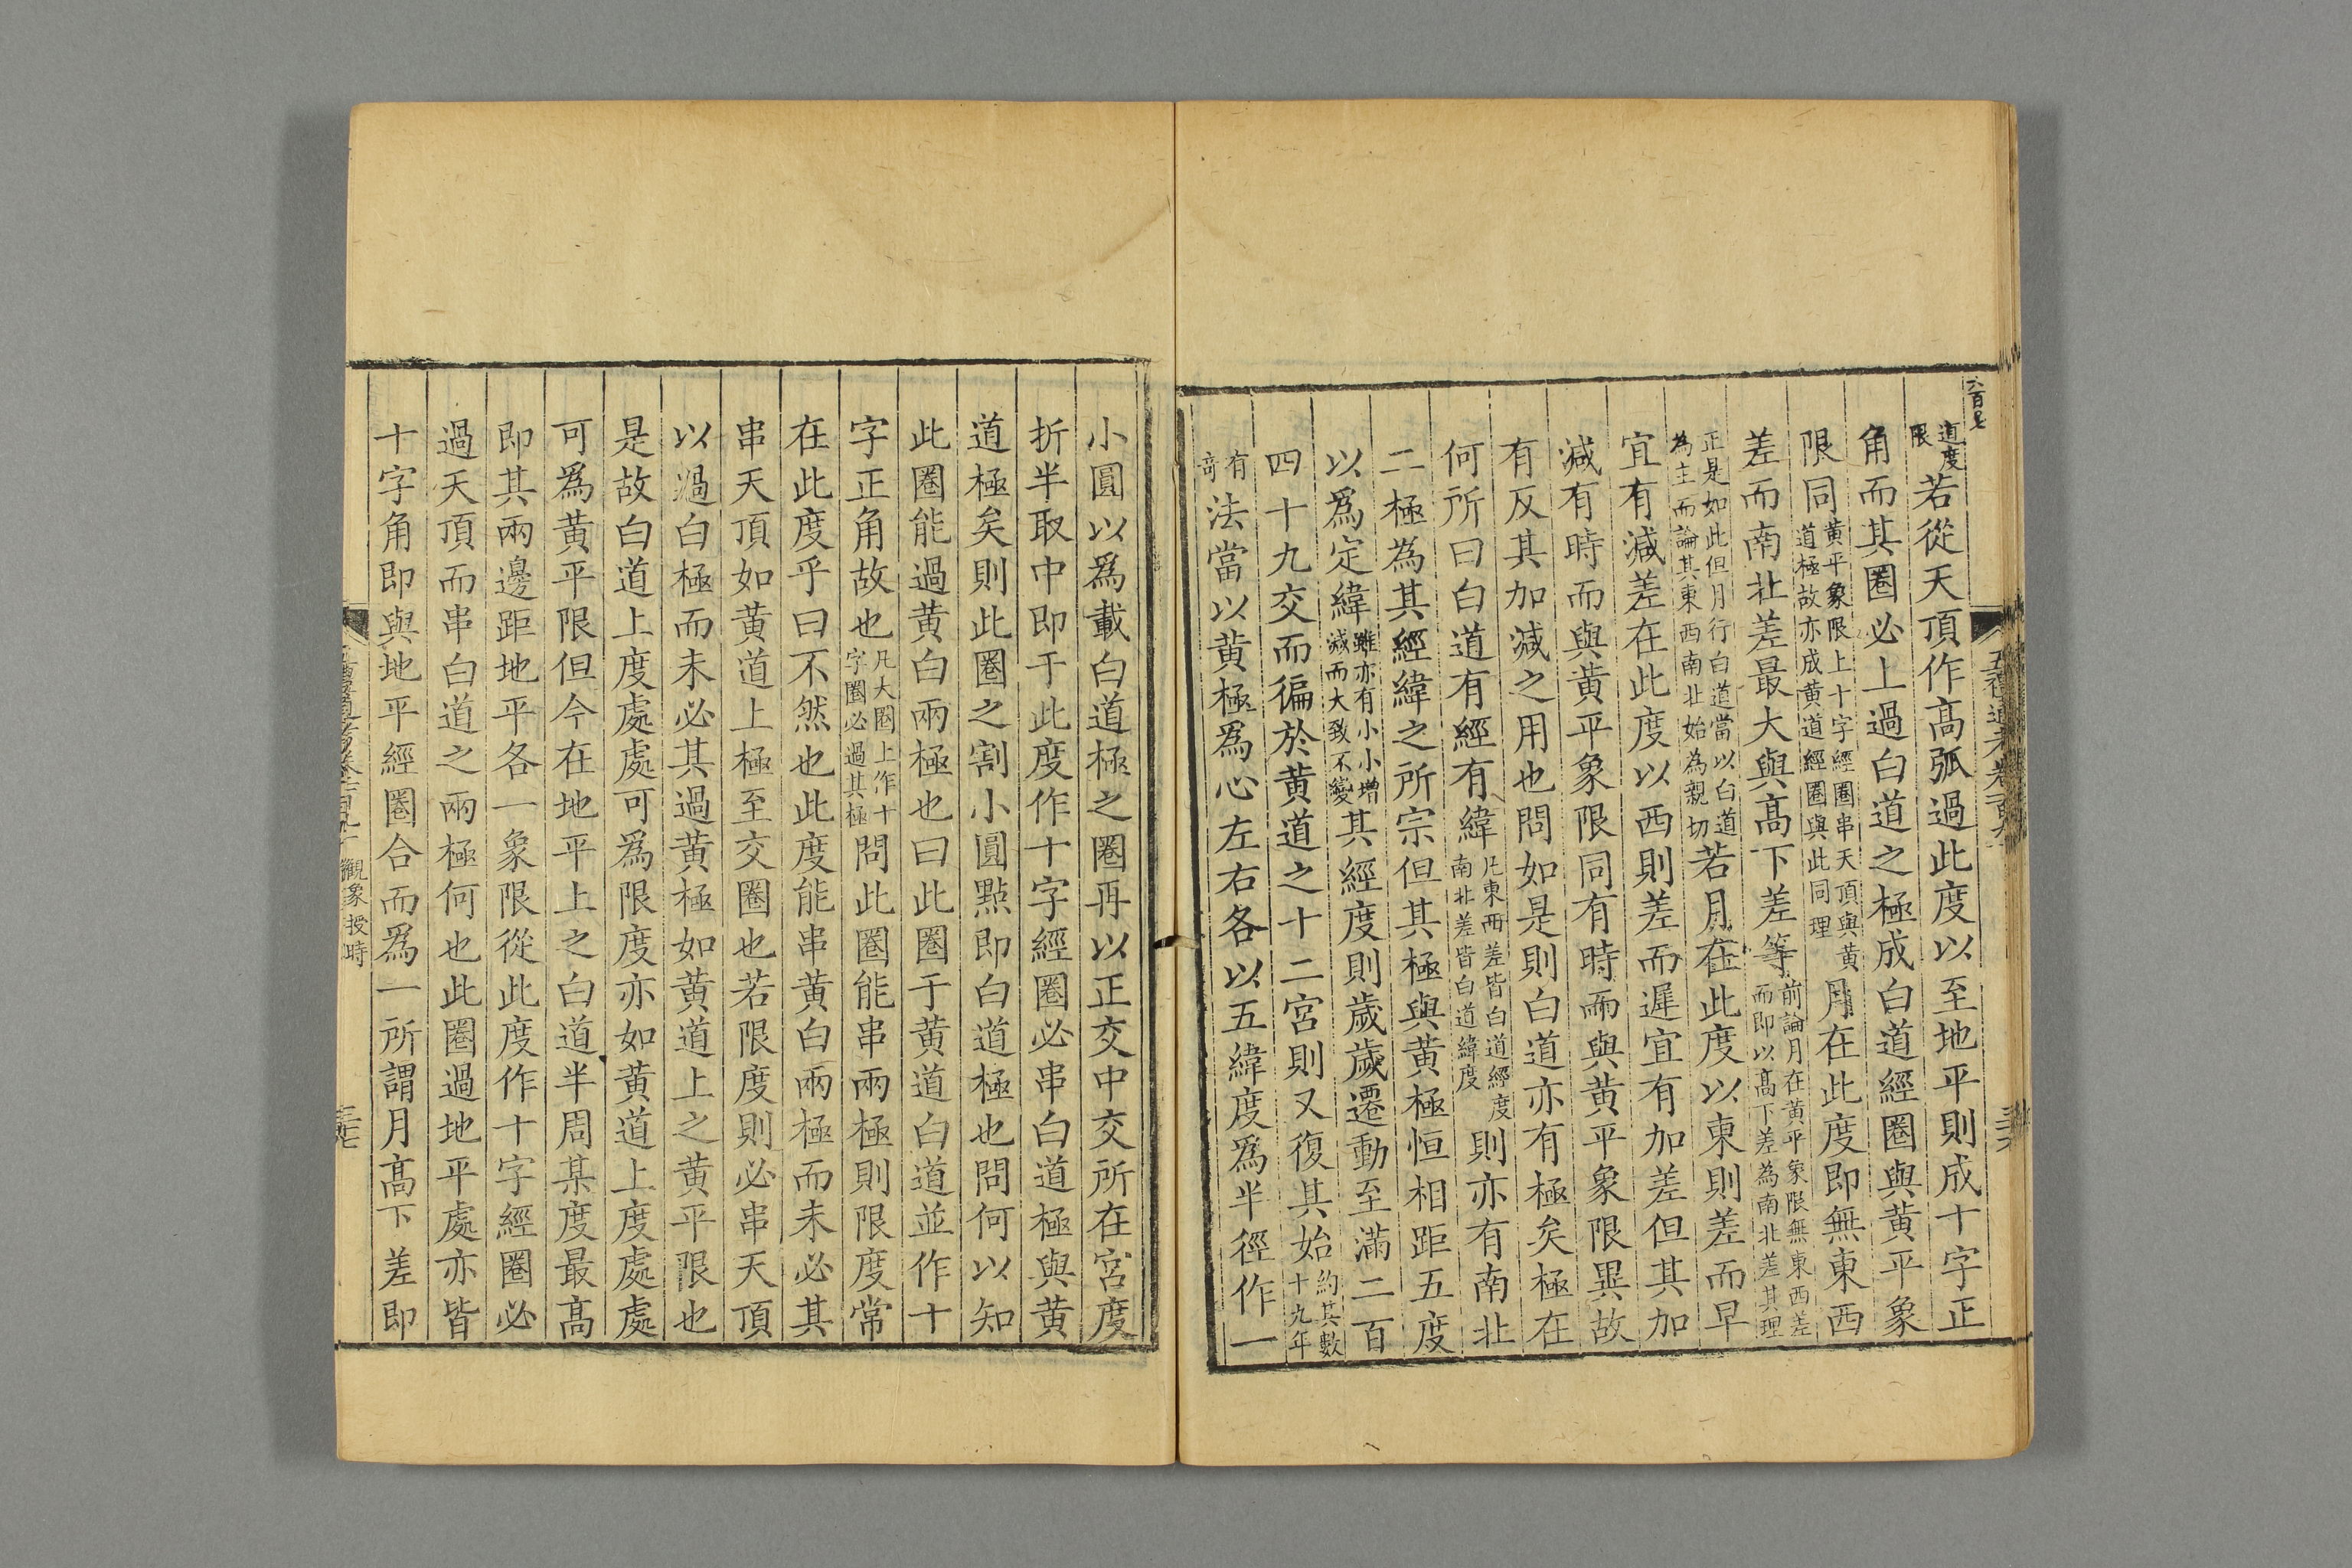 道度限若從天頂作高弧過此度以至地平則成十字正
角而其圈必上過白道之極成白道經圈與黃平象
限同黃平象限上十字經圈串天頂與黃道極故亦成黃道經圈與此同理月在此度即無東西
差而南北差最大與高下差等前論月在黃平象限無東西差而即以高下差為南北差其理
正是如此但月行白道當以白道為主而論其東西南北始為親切若月在此度以東則差而早
宜有減差在此度以西則差而遲宜有加差但其加
減有時而與黃平象限同有時而與黃平象限異故
有反其加減之用也問如是則白道亦有極矣極在
何所曰白道有經有緯凡東西差皆白道經度南北差皆白道緯度則亦有南北
二極為其經緯之所宗但其極與黃極恒相距五度
以爲定緯雖亦有小小增減而大致不變其經度則歲歲遷動至滿二百
四十九交而徧於黃道之十二宮則又復其始約其數十九年
有奇法當以黃極爲心左右各以五緯度爲半徑作一
小圓以爲載白道極之圈再以正交中交所在宮度
折半取中即于此度作十字經圈必串白道極與黃
道極矣則此圈之割小圓點即白道極也問何以知
此圈能過黃白兩極也曰此圈于黃道白道並作十
字正角故也凡大圈上作十字圈必過其極問此圈能串兩極則限度常
在此度乎曰不然也此度能串黃白兩極而未必其
串天頂如黃道上極至交圈也若限度則必串天頂
以過白極而未必其過黃極如黃道上之黃平限也
是故白道上度處處可爲限度亦如黃道上度處處
可爲黃平限但今在地平上之白道半周某度最高
即其兩邊距地平各一象限從此度作十字經圈必
過天頂而串白道之兩極何也此圈過地平處亦皆
十字角即與地平經圈合而爲一所謂月高下差即
觀象授時